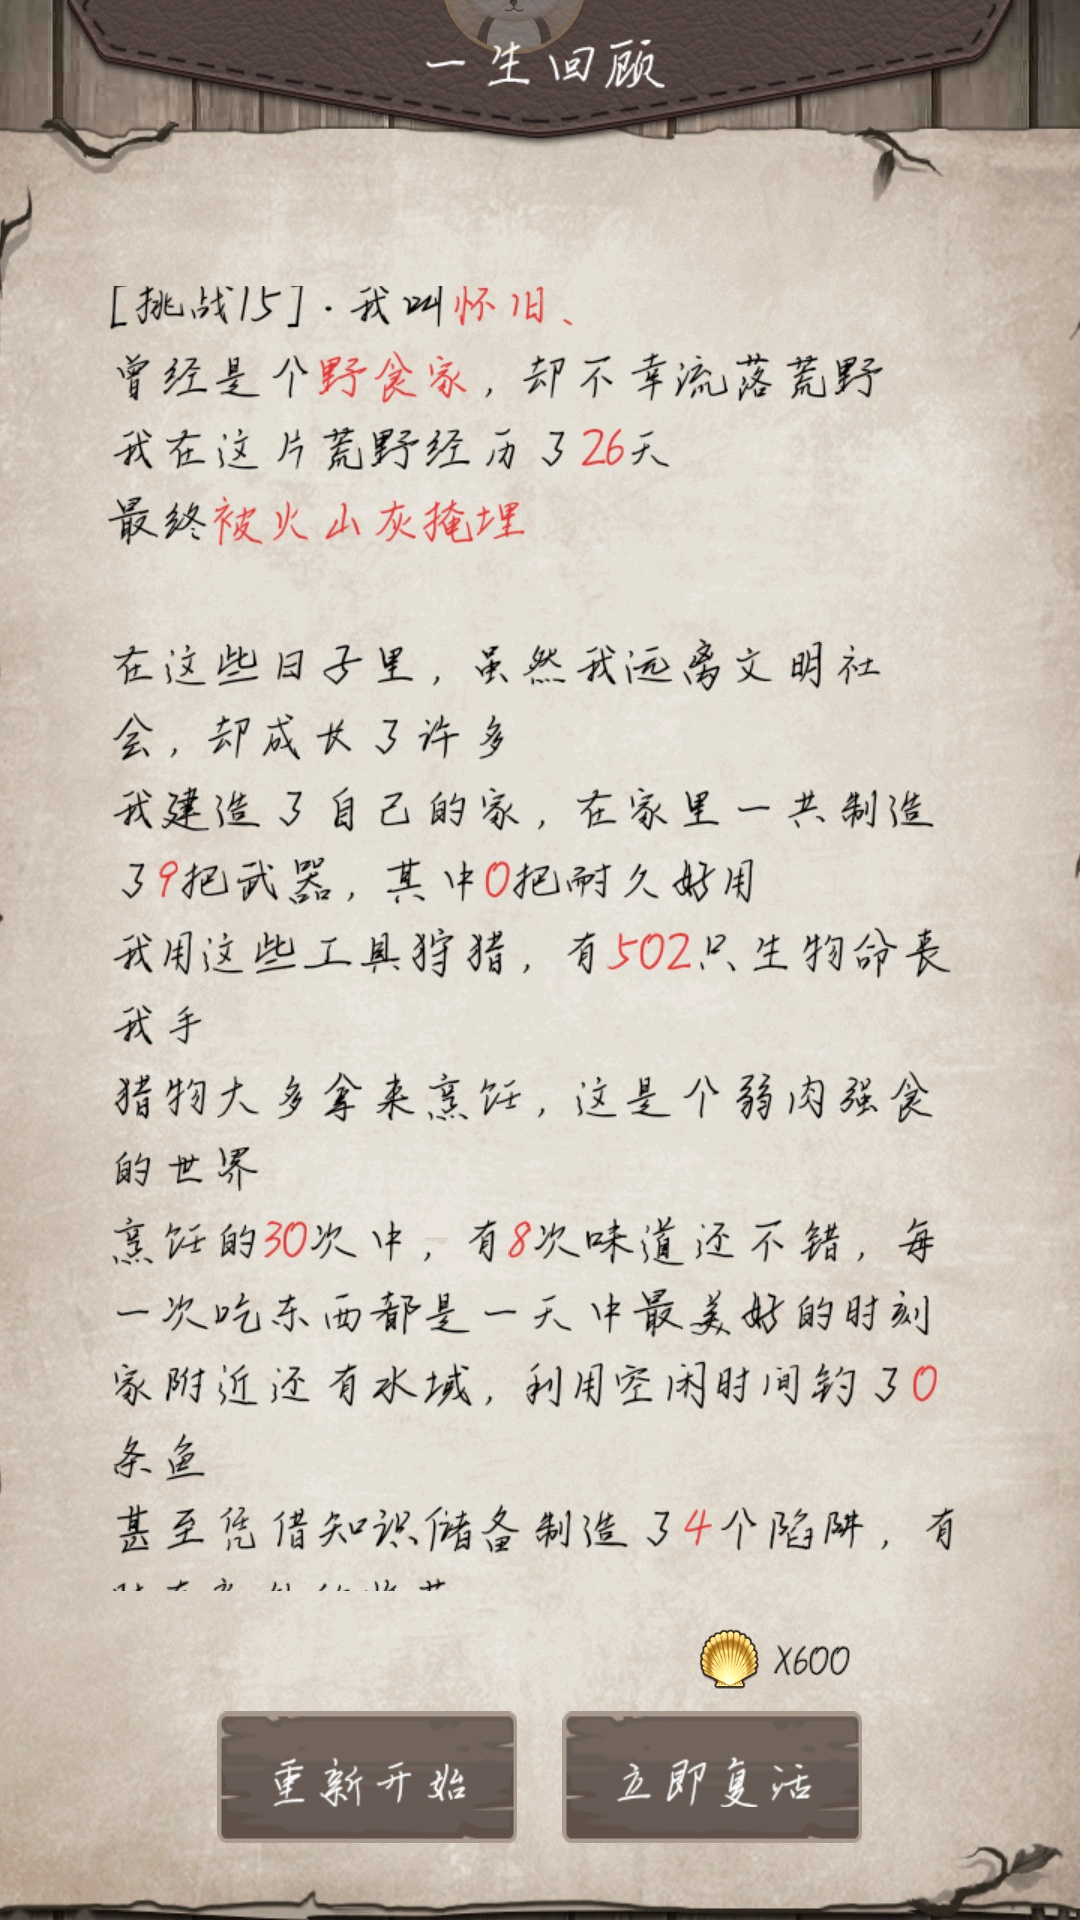 一生回顾
[挑战15]·我叫怀旧、
曾经是个野食家，却不幸流落荒野
我在这片荒野经历了26天
最终被火山灰掩埋
在这些日子里，虽然我远离文明社
会，却成长了许多
我建造了自己的家，在家里一共制造
了9把武器，其中0把耐久好用
我用这些工具狩猎，有502只生物命丧
我手
猎物大多拿来烹饪，这是个弱肉强食
的世界
烹饪的30次中，有8次味道还不错，每
一次吃东西都是一天中最美好的时刻
家附近还有水域，利用空闲时间钓了0
条鱼
甚至凭借知识储备制造了4个陷阱，有
X600
重新开始
立即复活